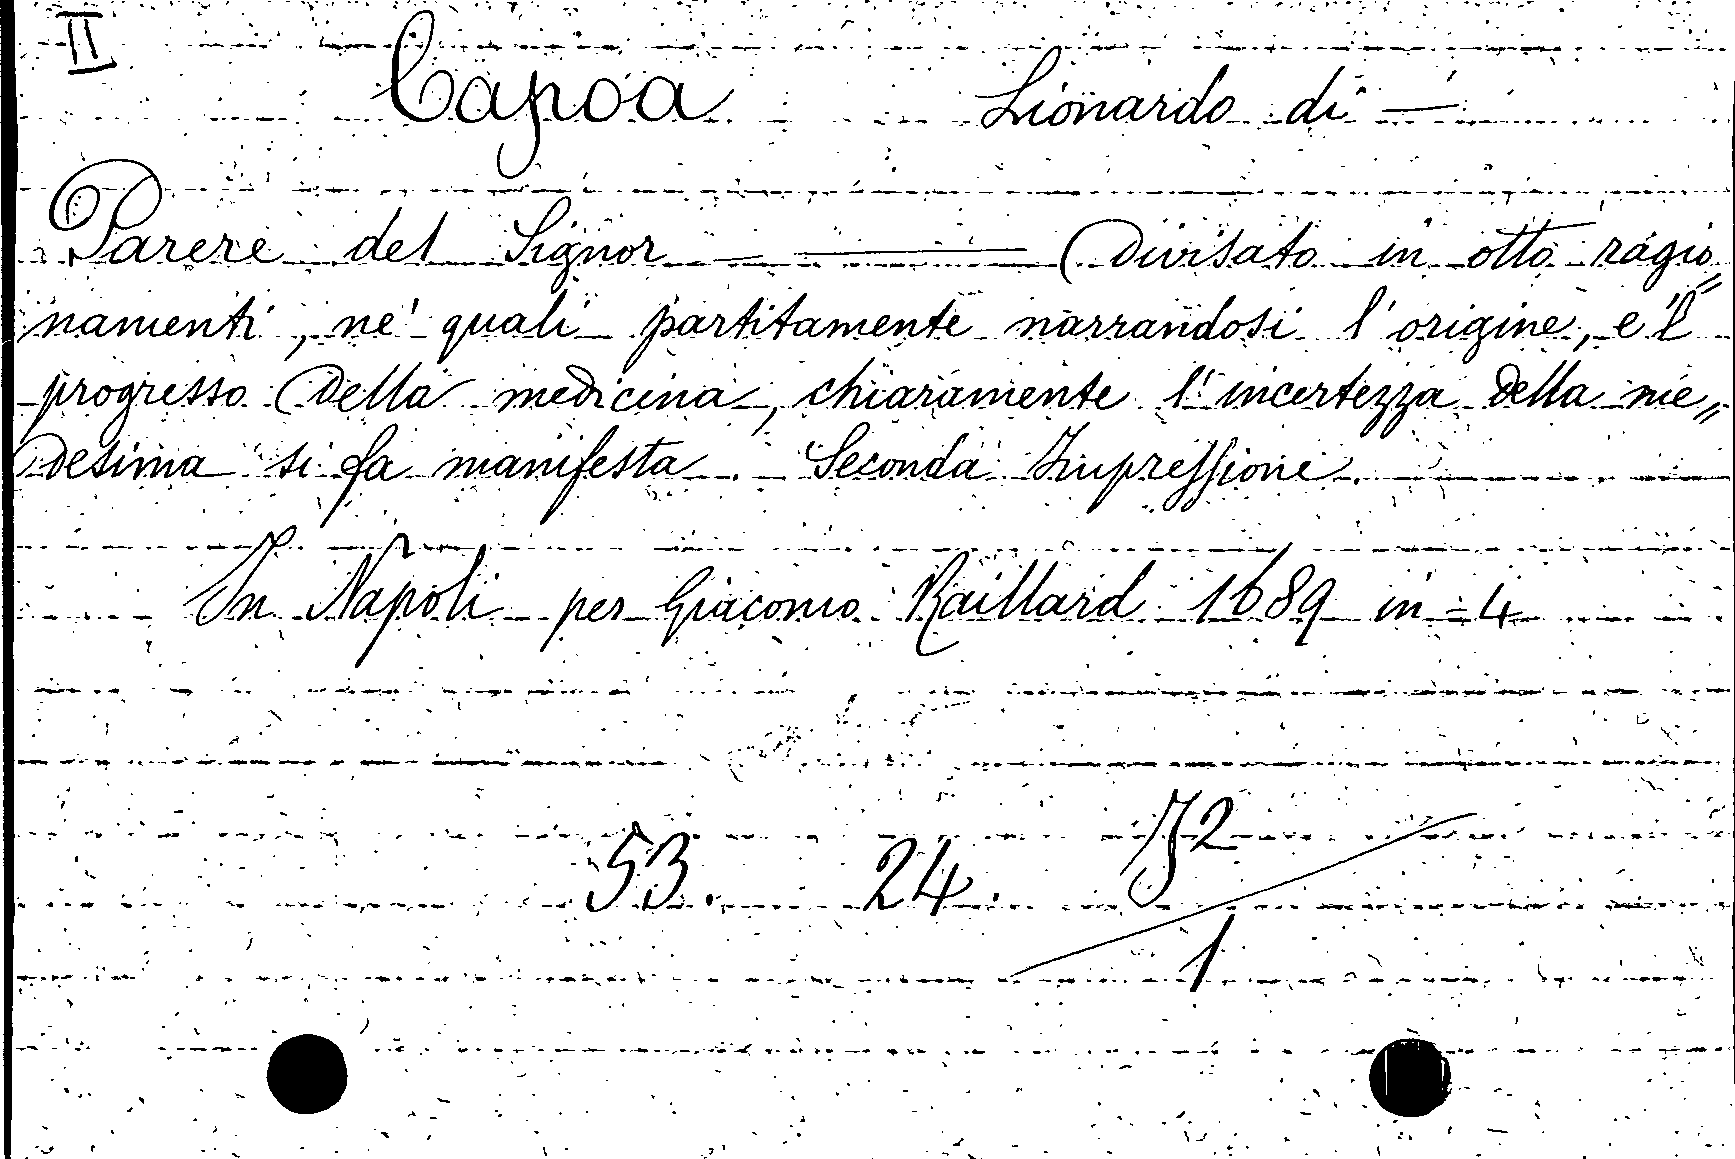 II
Capoa Lionardo di —
Parere del Signor ——— Divisato in otto ragio„
namenti, ne' quali partitamente narrandosi l'origine, e 'l
progresso della medicina, chiaramente l'incertezza della me„
desima si fa manifesta. Seconda Impressione.
In Napoli per Giacomo Raillard 1689 in-4
53. 24. J2
1